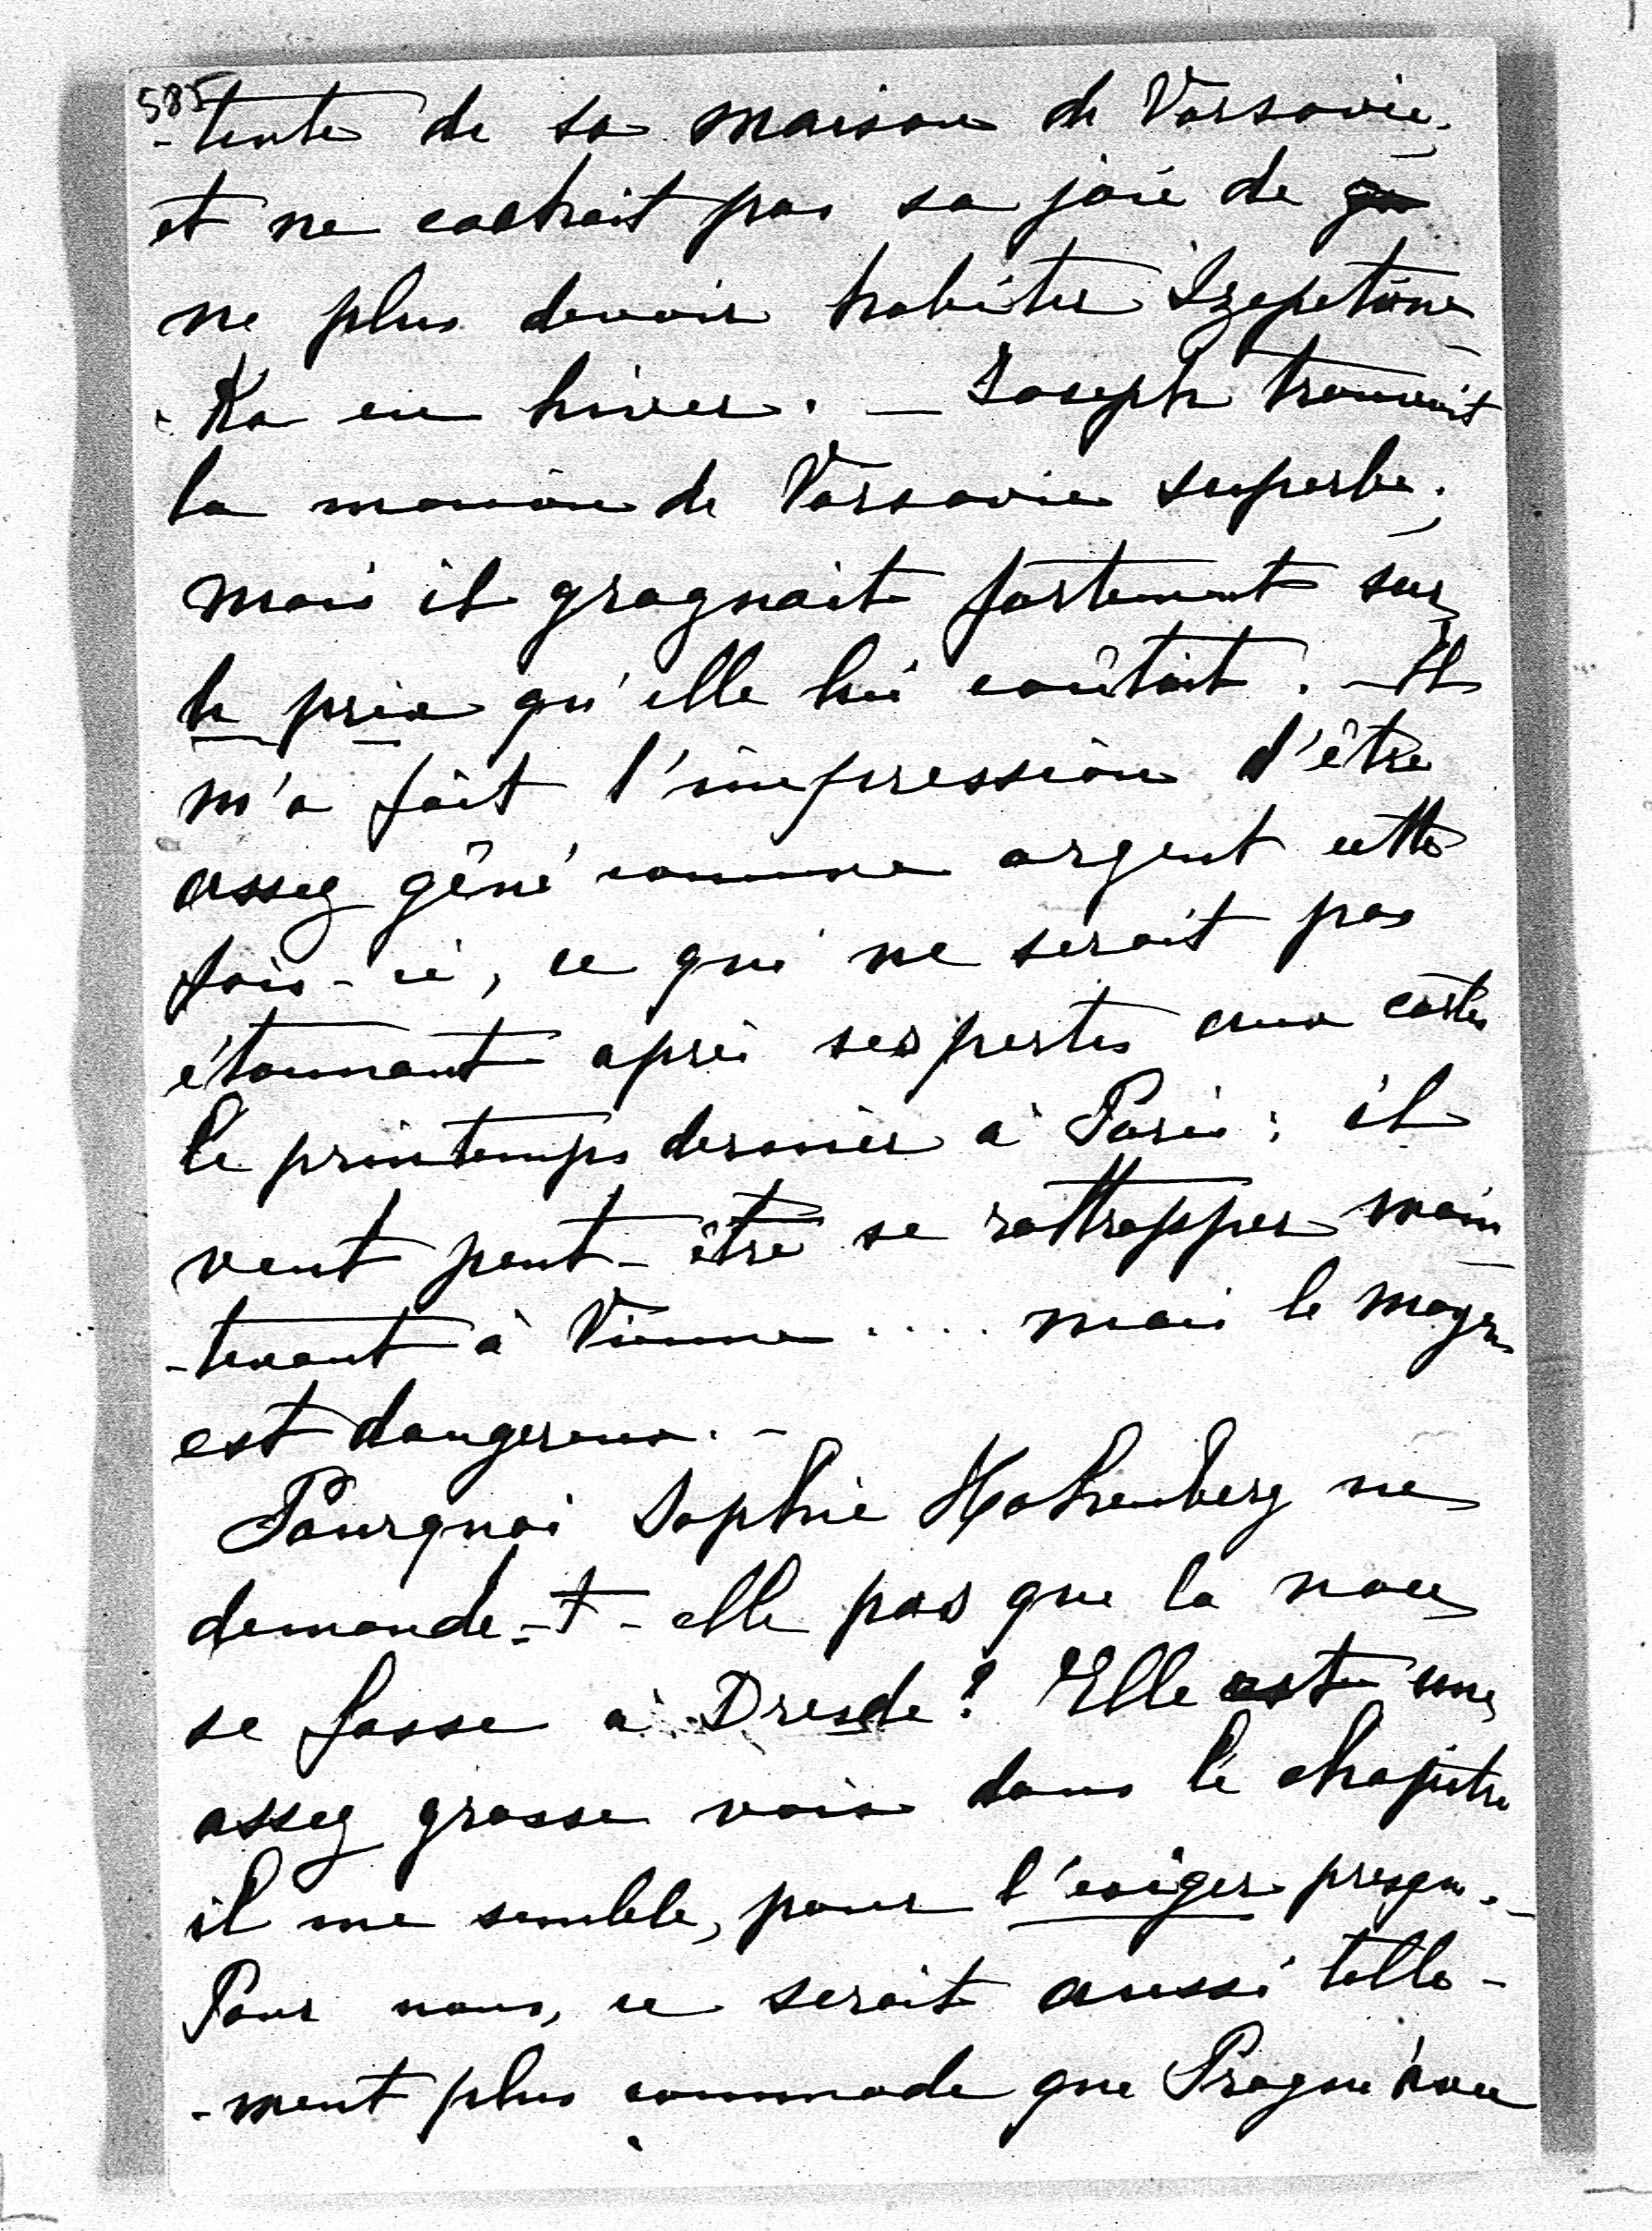 585
-tente de sa maison de Varsovie,
et ne cachait pas sa joie de
ne plus devoir habiter Szepetow-
-Ka en hiver. — Joseph trouvait
la maison de Varsovie superbe;
mais il grognait fortement sur
le prix qu'elle lui coûtait. — Il
m'a fait l'impression d'être
assez gêné comme argent cette
fois-ci, ce qui ne serait pas
étonnant après ses pertes aux cartes
le printemps dernier à Paris; il
veut peut-être se rattrapper main
-tenant à Vienne .... mais le moyen
est dangereux. -
Pourquoi Sophie Hohenberg ne
demande-t-elle pas que la noce
se fasse à Dresde? Elle a une
assez grosse voix dans le chapitre
il me semble, pour l'exiger presque. -
Pour nous, ce serait aussi telle-
-ment plus commode que Prague